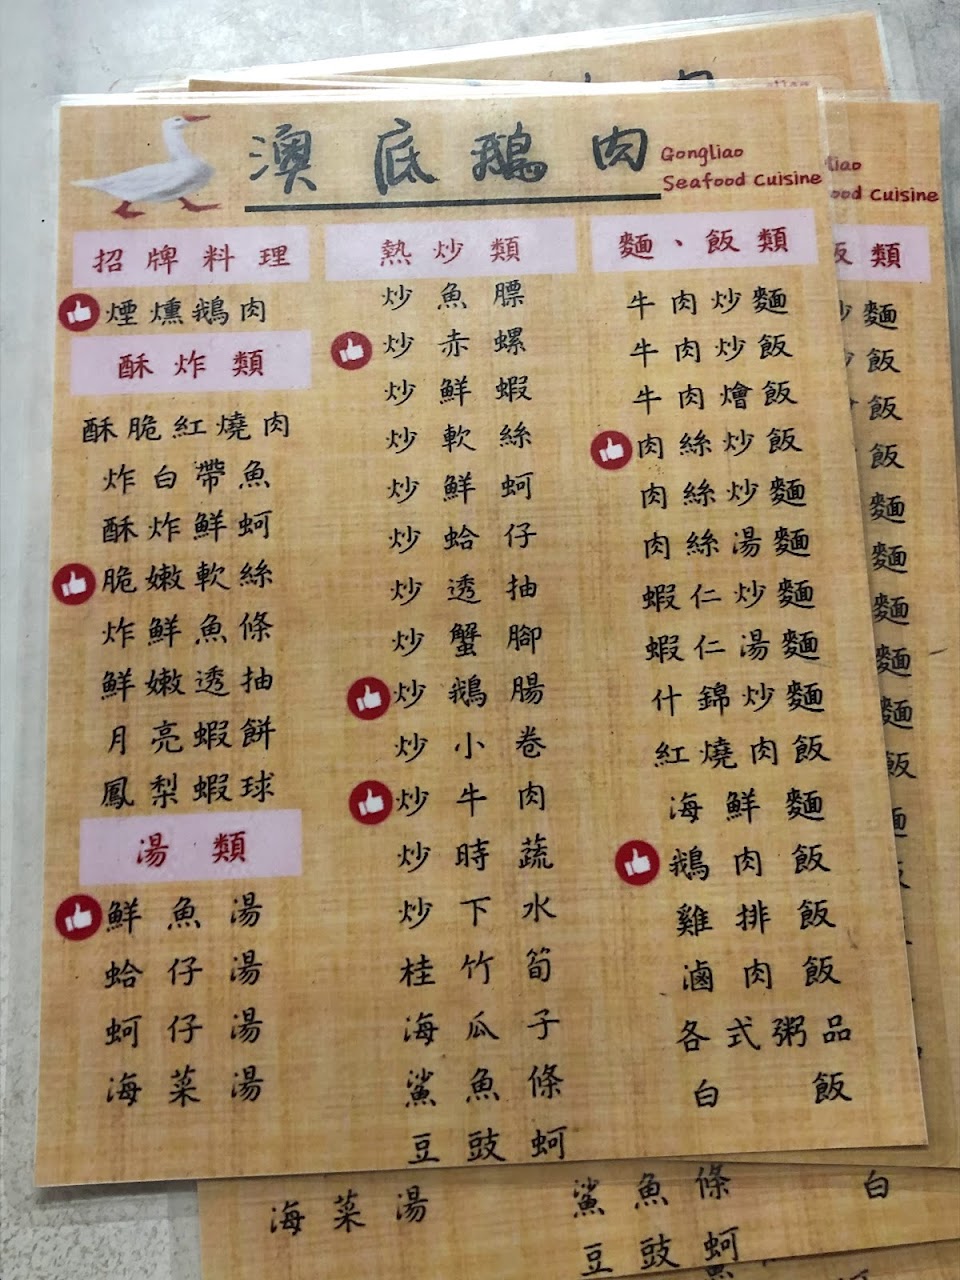 澳底鵝肉
Gongliao
Seafood Cuisine
招牌料理
煙燻鵝肉
酥炸類
酥脆紅燒肉
炸白帶魚
酥炸鮮蚵
脆嫩軟絲
炸鮮魚條
鮮嫩透抽
月亮蝦餅
鳳梨蝦球
湯類
鮮魚湯
蛤仔湯
蚵仔湯
海菜湯
熱炒類
炒魚膘
炒赤螺
炒鮮蝦
炒軟絲
炒鮮蚵
炒蛤仔
炒透抽
炒蟹腳
炒鵝腸
炒小卷
炒牛肉
炒時蔬
炒下水
桂竹筍
海瓜子
鯊魚條
豆豉蚵
麵、飯類
牛肉炒麵
牛肉炒飯
牛肉燴飯
肉絲炒飯
肉絲炒麵
肉絲湯麵
蝦仁炒麵
蝦仁湯麵
什錦炒麵
紅燒肉飯
海鮮麵
鵝肉飯
雞排飯
滷肉飯
各式粥品
白飯
liao
ood Cuisine
飯類
炒麵
飯
飯
飯
麵
麵
麵
麵
麵
飯
海菜湯
鯊魚條
豆豉蚵
白